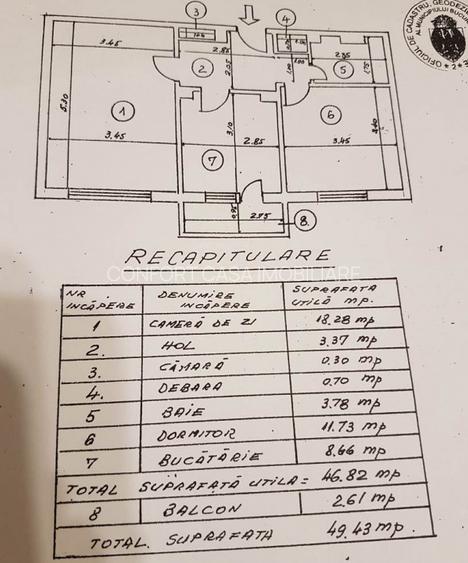 3
4
OFICIUL DE CADASTRU, GEODEZIE
AL MUNICIPIULUI BUCU
3.45
2.85
2
5
1
5.30
2.05
1.00
6
3.10
3.45
7
2.85
3.45
2.75
8
RECAPITULARE
CONFORT CASA IMOBILIARE
NR. INCĂPERE DENUMIRE INCĂPERE SUPRAFATA UTILĂ MP.
1 CAMERĂ DE ZI 18.28 mp
2. HOL 3.37 mp
3. CĂMARĂ 0.30 mp
4. DEBARA 0.70 mp
5 BAIE 3.78 mp
6 DORMITOR 11.73 mp
7 BUCĂTĂRIE 8.66 mp
TOTAL SUPRAFATĂ UTILA = 46.82 mp
8 BALCON 2.61 mp
TOTAL. SUPRAFATA 49.43 mp.